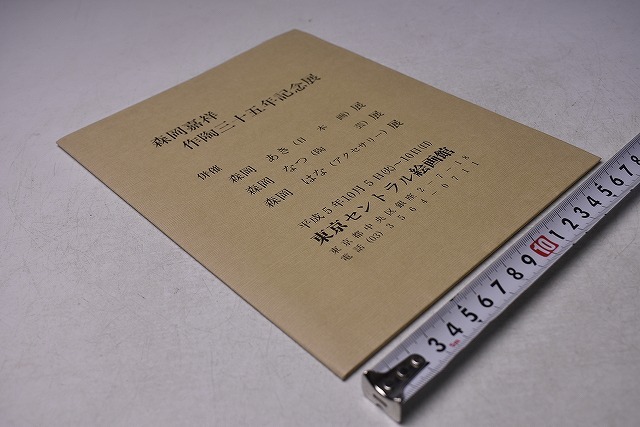 森岡嘉祥
作陶三十五年記念展
併催 森岡 あき(日本画)展
森岡 なつ(陶芸)展
森岡 はな(アクセサリー)展
平成5年10月5日(火)―10日(日)
東京セントラル絵画館
東京都中央区銀座2-7-18
電話(03)3564-0711
3 4 5 6 7 8 9 10 1 2 3 4 5 6 7 8